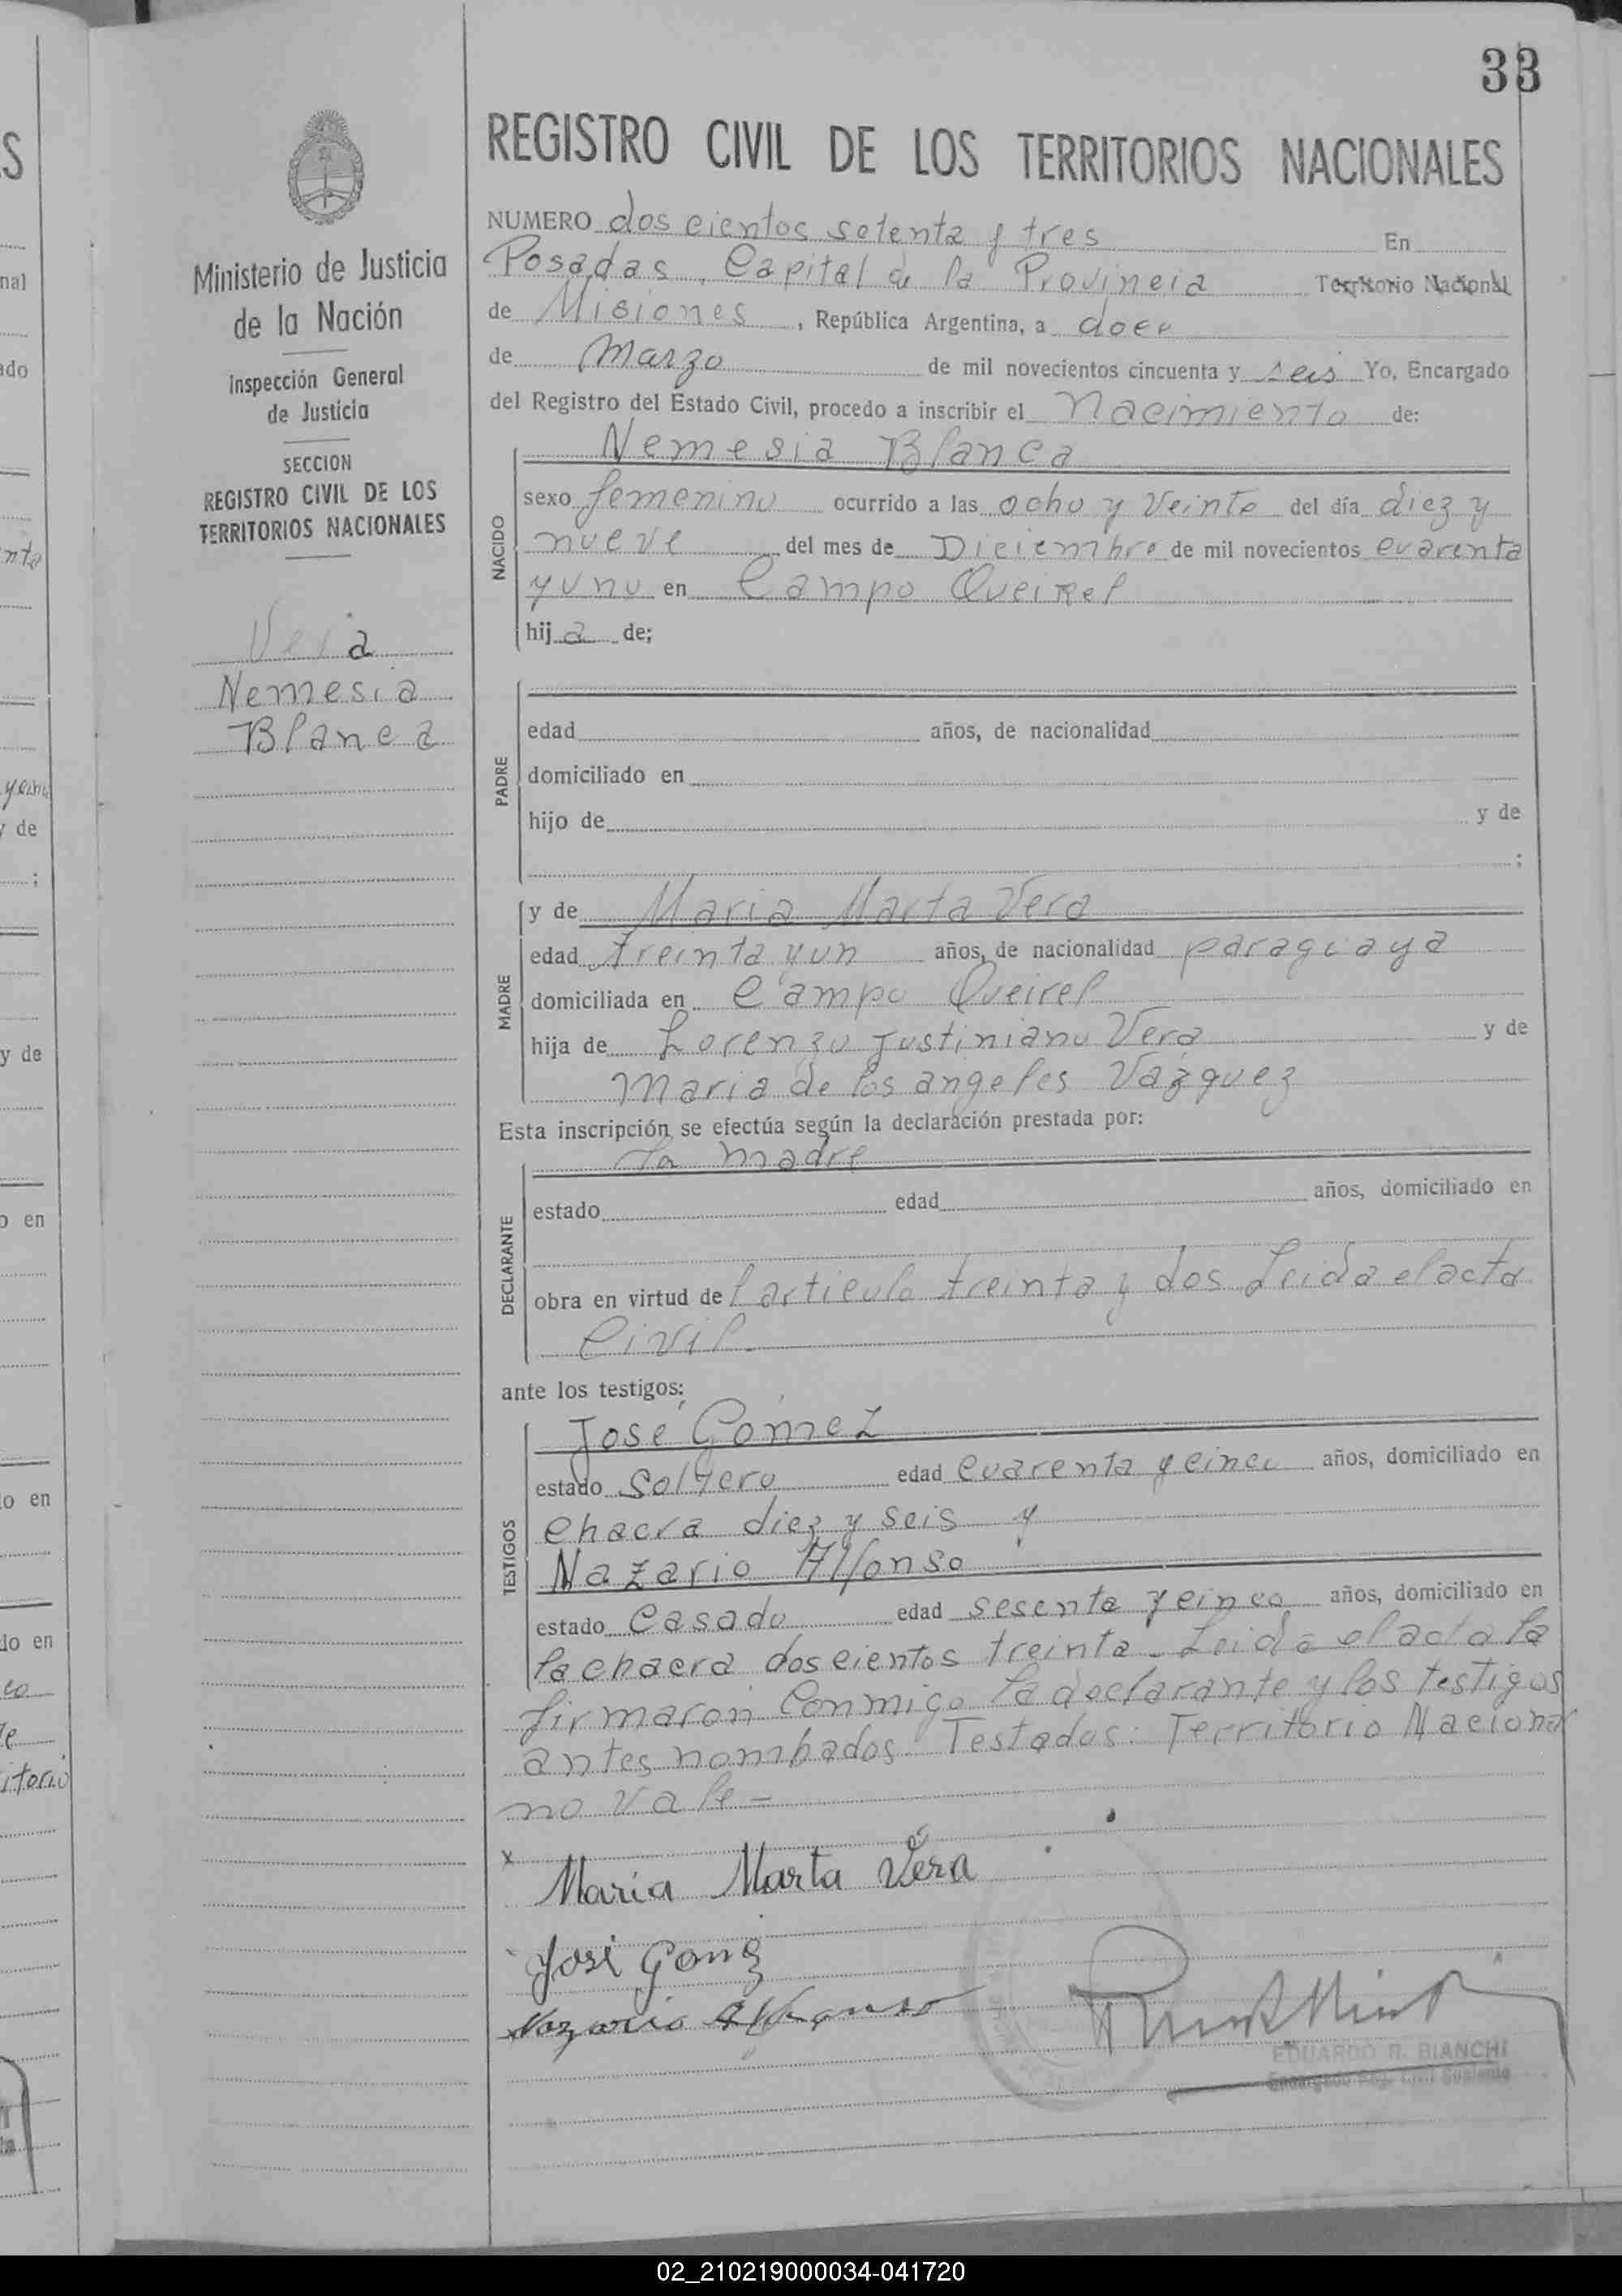 33
REGISTRO CIVIL DE LOS TERRITORIOS NACIONALES
Ministerio de Justicia
de la Nación
Inspección General
de Justicia
SECCION
REGISTRO CIVIL DE LOS
TERRITORIOS NACIONALES
Vera
Nemesia
Blanca
NUMERO dos cientos setenta y tres En
Posadas, Capital de la Provincia Territorio Nacional
de Misiones, República Argentina, a doce
de Marzo de mil novecientos cincuenta y seis Yo, Encargado
del Registro del Estado Civil, procedo a inscribir el Nacimiento de:
NACIDO
Nemesia Blanca
sexo femenino ocurrido a las ocho y Veinte del día diez y
nueve del mes de Diciembre de mil novecientos cuarenta
y uno en Campo Queirel
hija de;
PADRE
edad años, de nacionalidad
domiciliado en
hijo de y de
;
MADRE
y de Maria Marta Vera
edad treinta y un años, de nacionalidad paraguaya
domiciliada en Campo Queirel
hija de Lorenzo Justiniano Vera y de
Maria de los angeles Vazquez
Esta inscripción se efectúa según la declaración prestada por:
DECLARANTE
la madre
estado edad años, domiciliado en
obra en virtud de l articulo treinta y dos Leida el acta
Civil.
ante los testigos:
TESTIGOS
José Gómez
estado Soltero edad cuarenta y cinco años, domiciliado en
chacra diez y seis y
Nazario Alfonso
estado Casado edad sesenta y cinco años, domiciliado en
la chacra dos cientos treinta - Leida el acta la
firmaron Conmigo la declarante y los testigos
antes nombados. Testados: Territorio Nacional
no Vale -
x
Maria Marta Vera
José Gomz
Nazario Alfonso
EDUARDO R. BIANCHI
Encargado Reg. Civil Suplente
02_210219000034-041720